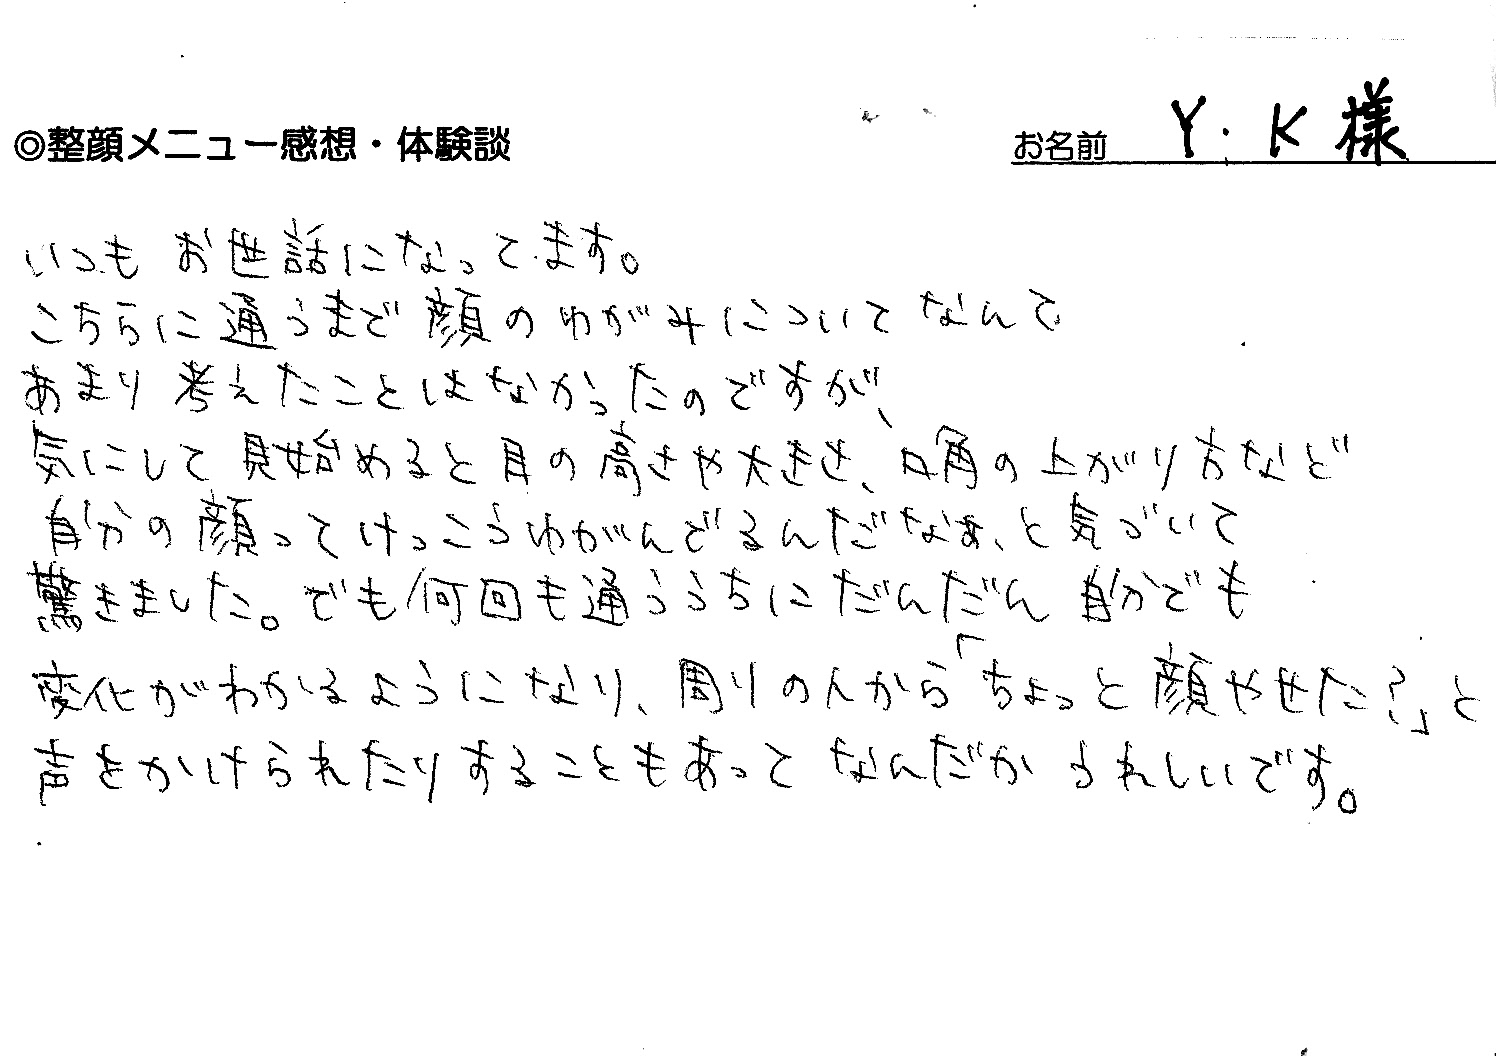 ◎整顔メニュー感想・体験談
お名前 Y.K様
いつもお世話になってます。
こちらに通うまで顔のゆがみについてなんて
あまり考えたことはなかったのですが、
気にして見始めると目の高さや大きさ、口角の上がり方など
自分の顔ってけっこうゆがんでるんだなぁ、と気づいて
驚きました。でも何回も通ううちにだんだん自分でも
変化がわかるようになり、周りの人から「ちょっと顔やせた?」と
声をかけられたりすることもあってなんだかうれしいです。